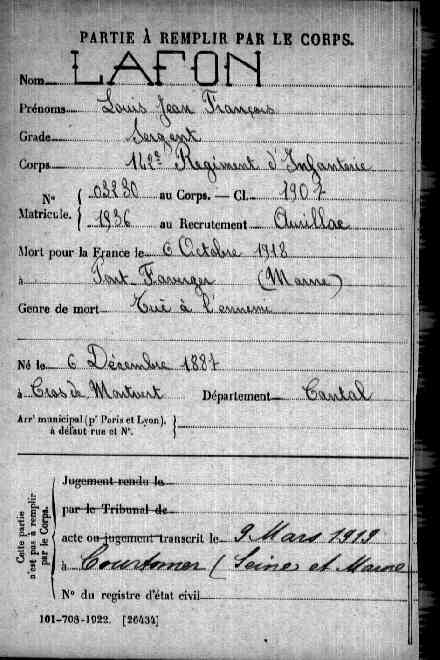 PARTIE À REMPLIR PAR LE CORPS.
Nom LAFON
Prénoms Louis Jean François
Grade Sergent
Corps 142e Regiment d'Infanterie
N° Matricule. 03230 au Corps. — Cl. 1907
1936 au Recrutement Aurillac
Mort pour la France le 6 Octobre 1918
à Pont Faverger (Marne)
Genre de mort Tué à l'ennemi
Né le 6 Décembre 1887
à Cros de Montvert Département Cantal
Arrt municipal (pr Paris et Lyon),
à défaut rue et N°.
Cette partie n'est pas à remplir par le Corps.
Jugement rendu le
par le Tribunal de
acte ou jugement transcrit le 9 Mars 1919
à Courtomer (Seine et Marne
N° du registre d'état civil
101-708-1922. [26434]